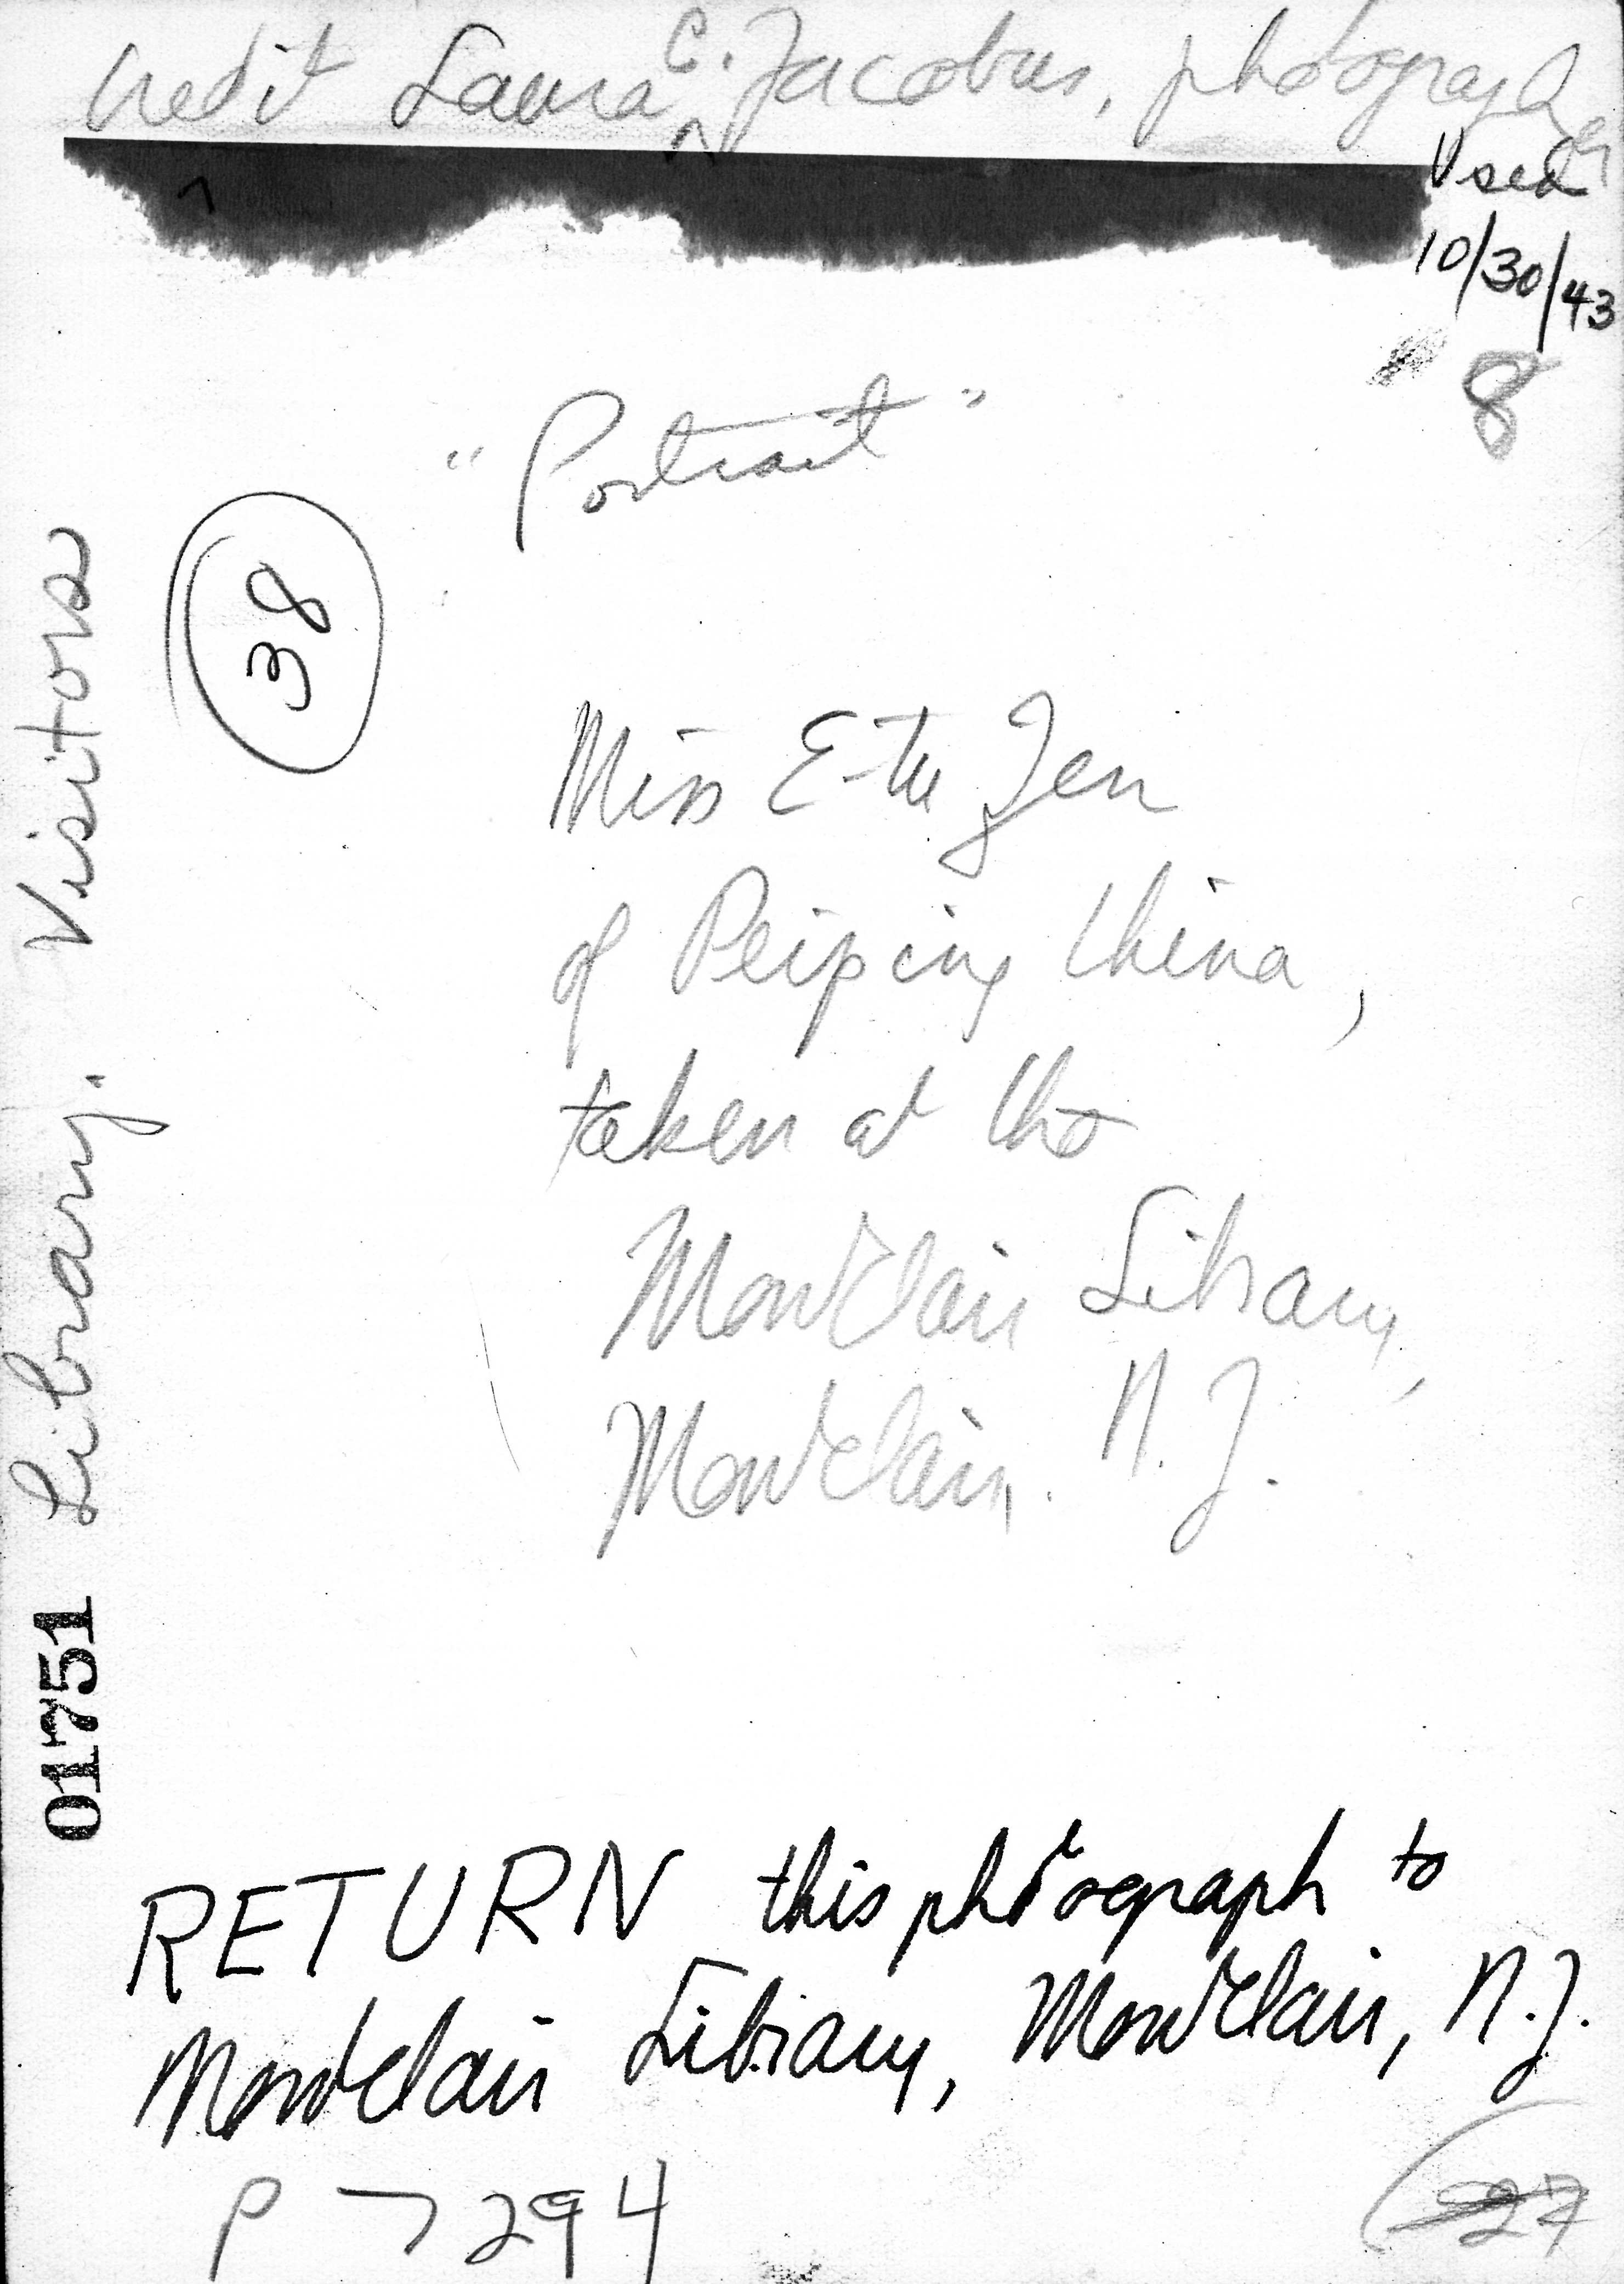 Credit Laura C. Jacobus, photographer
Used
10/30/43
8
"Portrait"
38
Miss E-tu Zen
of Peiping China,
taken at the
Montclair Library,
Montclair, N.J.
Library. Visitors
01751
RETURN this photograph to
Montclair Library, Montclair, N.J.
P 7294
27